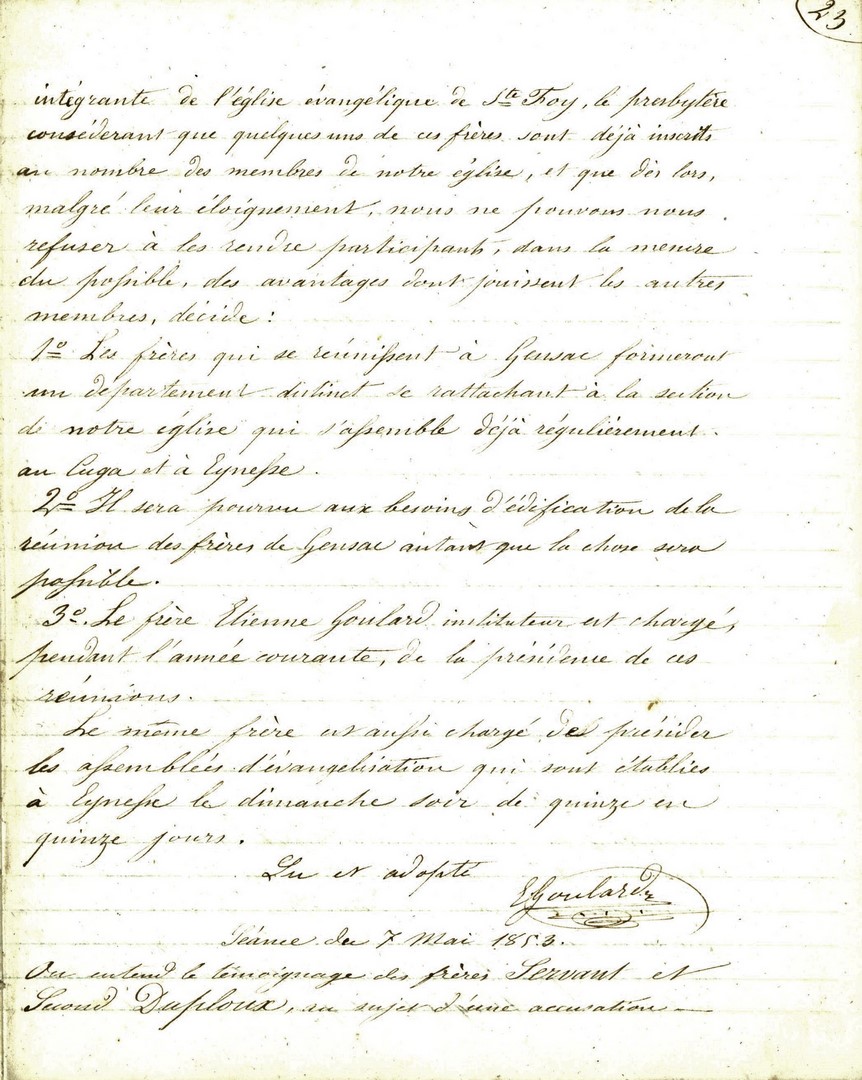 23
intégrante de l'église évangélique de Ste Foy, le presbytère
considérant que quelques uns de ces frères sont déjà inscrits
au nombre des membres de notre église, et que dès lors,
malgré leur éloignement, nous ne pouvons nous
refuser à les rendre participants, dans la mesure
du possible, des avantages dont jouissent les autres
membres, décide :
1o Les frères qui se réunissent à Gensac formeront
un département distinct se rattachant à la section
de notre église qui s'assemble déjà régulièrement
au Cuga et à Eynesse.
2o Il sera pourvu aux besoins d'édification de la
réunion des frères de Gensac autant que la chose sera
possible.
3o. Le frère Etienne Goulard instituteur est chargé,
pendant l'année courante, de la présidence de ces
réunions.
Le même frère est aussi chargé de présider
les assemblées d'évangelisation qui sont établies
à Eynesse le dimanche soir de quinze en
quinze jours.
Lu et adopté
EGoulard
Séance du 7 Mai 1853.
On entend le témoignage des frères Servant et
Second Duploux, au sujet d'une accusation —